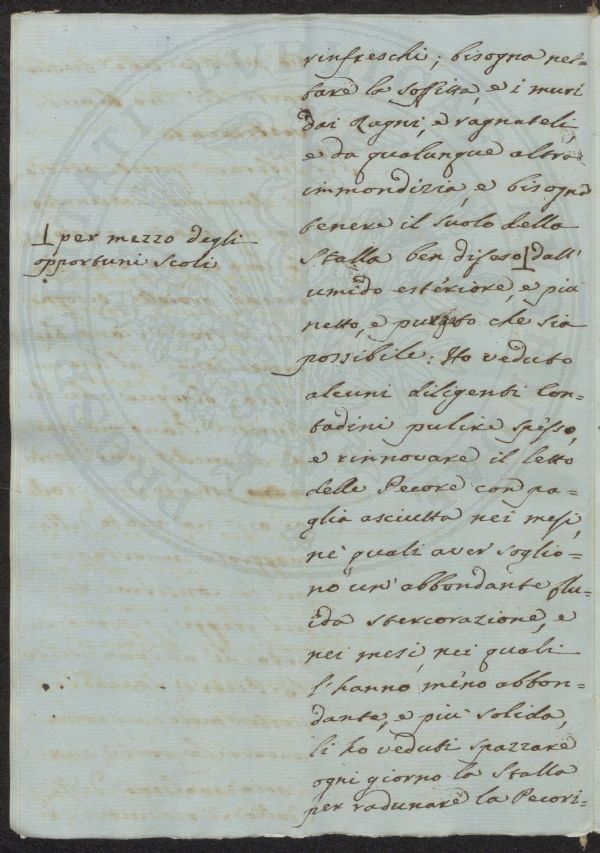 rinfreschi; bisogna net=
tare la soffitta, e i muri
dai Ragni, e ragnateli,
e da qualunque altra
immondizia, e bisogna
tenere il suolo della
Stalla ben difeso ⊥ dall'
umido esteriore, e più
netto, e purgato che sia
possibile: Ho veduto
alcuni diligenti Con=
tadini pulire spesso,
e rinnovare il letto
delle Pecore con pa=
glia asciutta nei mesi,
ne' quali aver soglio=
no un' abbondante flu=
ida stercorazione, e
nei mesi, nei quali
l'hanno meno abbon=
dante, e più solida,
li ho veduti spazzare
ogni giorno la Stalla
per radunare la Pecori=
⊥ per mezzo degli
opportuni scoli
PROSPERITATI PUBLICAE